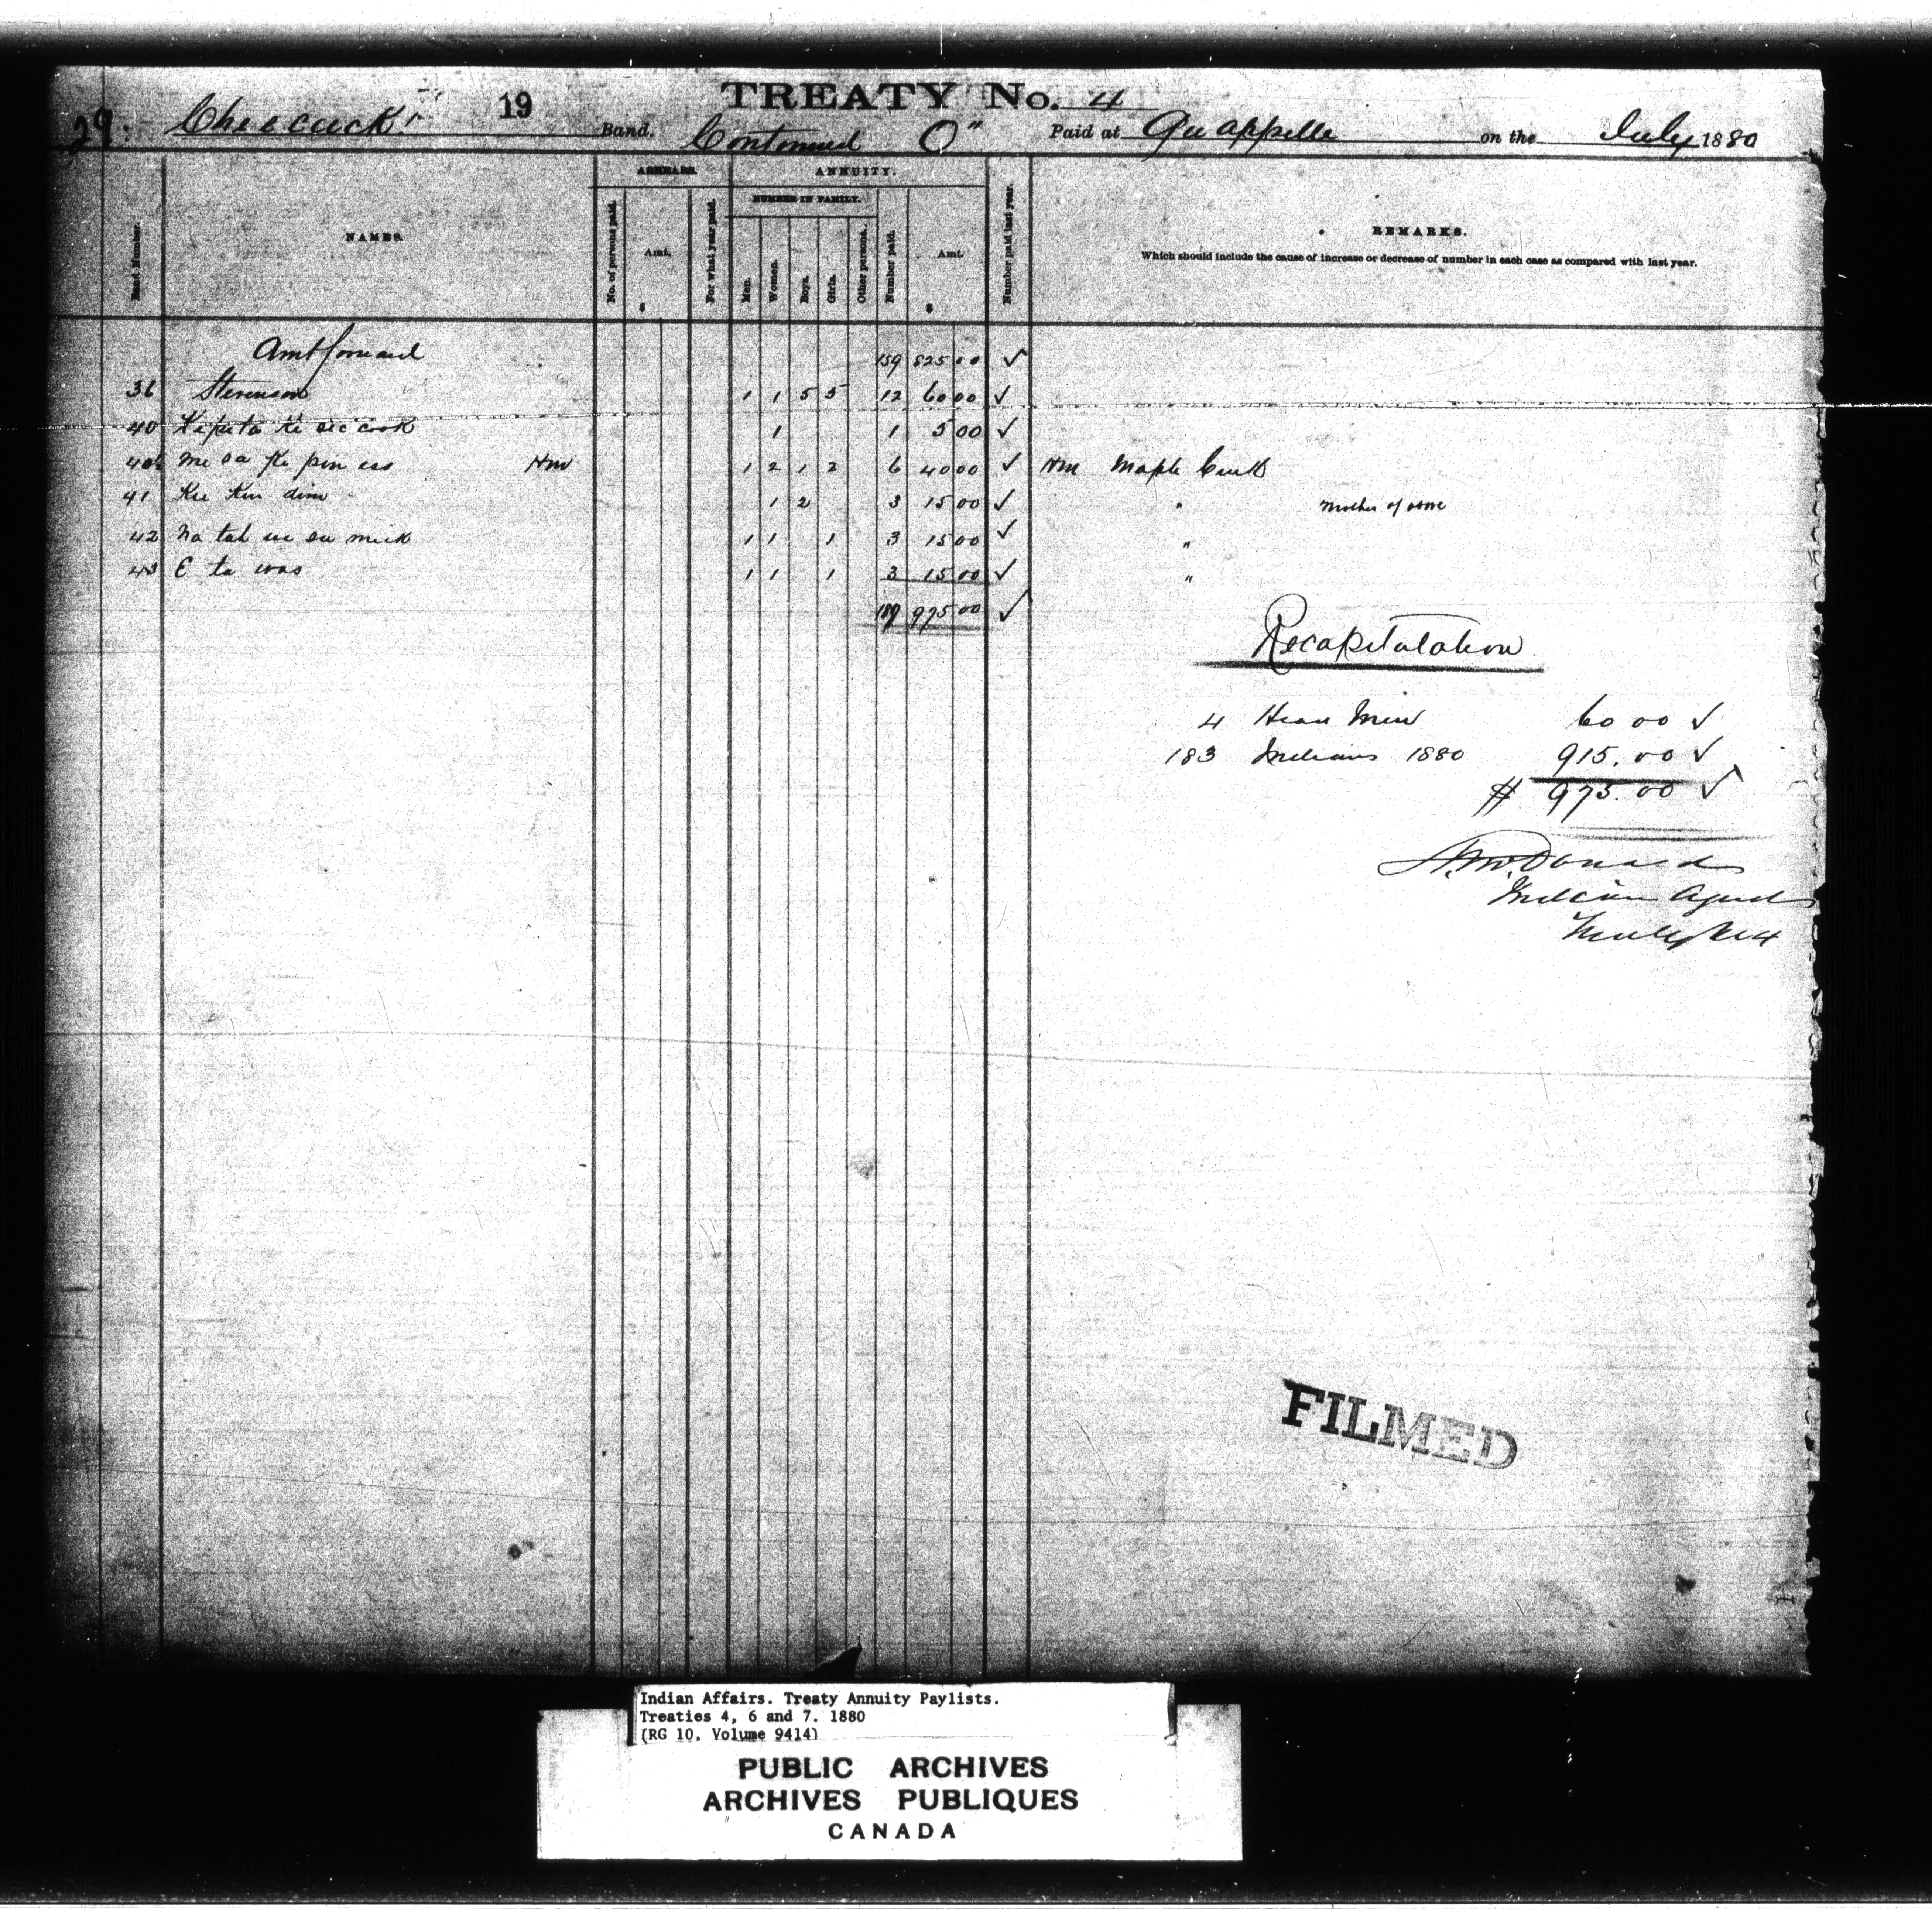 TREATY No. 4
29. Cheecuck 19 Band. Continued O" Paid at Qu appelle on the July 1880
Band Number.
NAMES.
ARREARS.
No. of persons paid.
Amt.
$
For what year paid.
ANNUITY.
NUMBER IN FAMILY.
Men.
Women.
Boys.
Girls.
Other persons.
Number paid.
Amt.
$
Number paid last year.
REMARKS.
Which should include the cause of increase or decrease of number in each case as compared with last year.
Amt forward 159 825 00 ✓
36 Stevenson 1 1 5 5 12 60 00 ✓
40 Kiputa Ki sic cook 1 1 5 00 ✓
40½ Me sa Ki pin ess Hm 1 2 1 2 6 40 00 ✓ Hm Maple Creek
41 Kee Kee dim 1 2 3 15 00 ✓ " Mother of above
42 Na tah we su mick 1 1 1 3 15 00 ✓ "
43 E ta was 1 1 1 3 15 00 ✓ "
187 975 00 ✓
Recapitulation
4 Head Men 60 00 ✓
183 Indians 1880 915.00 ✓
$ 975.00 ✓
A. McDonald
Indian Agent
Treaty No 4
FILMED
Indian Affairs. Treaty Annuity Paylists.
Treaties 4, 6 and 7. 1880
(RG 10, Volume 9414)
PUBLIC ARCHIVES
ARCHIVES PUBLIQUES
CANADA